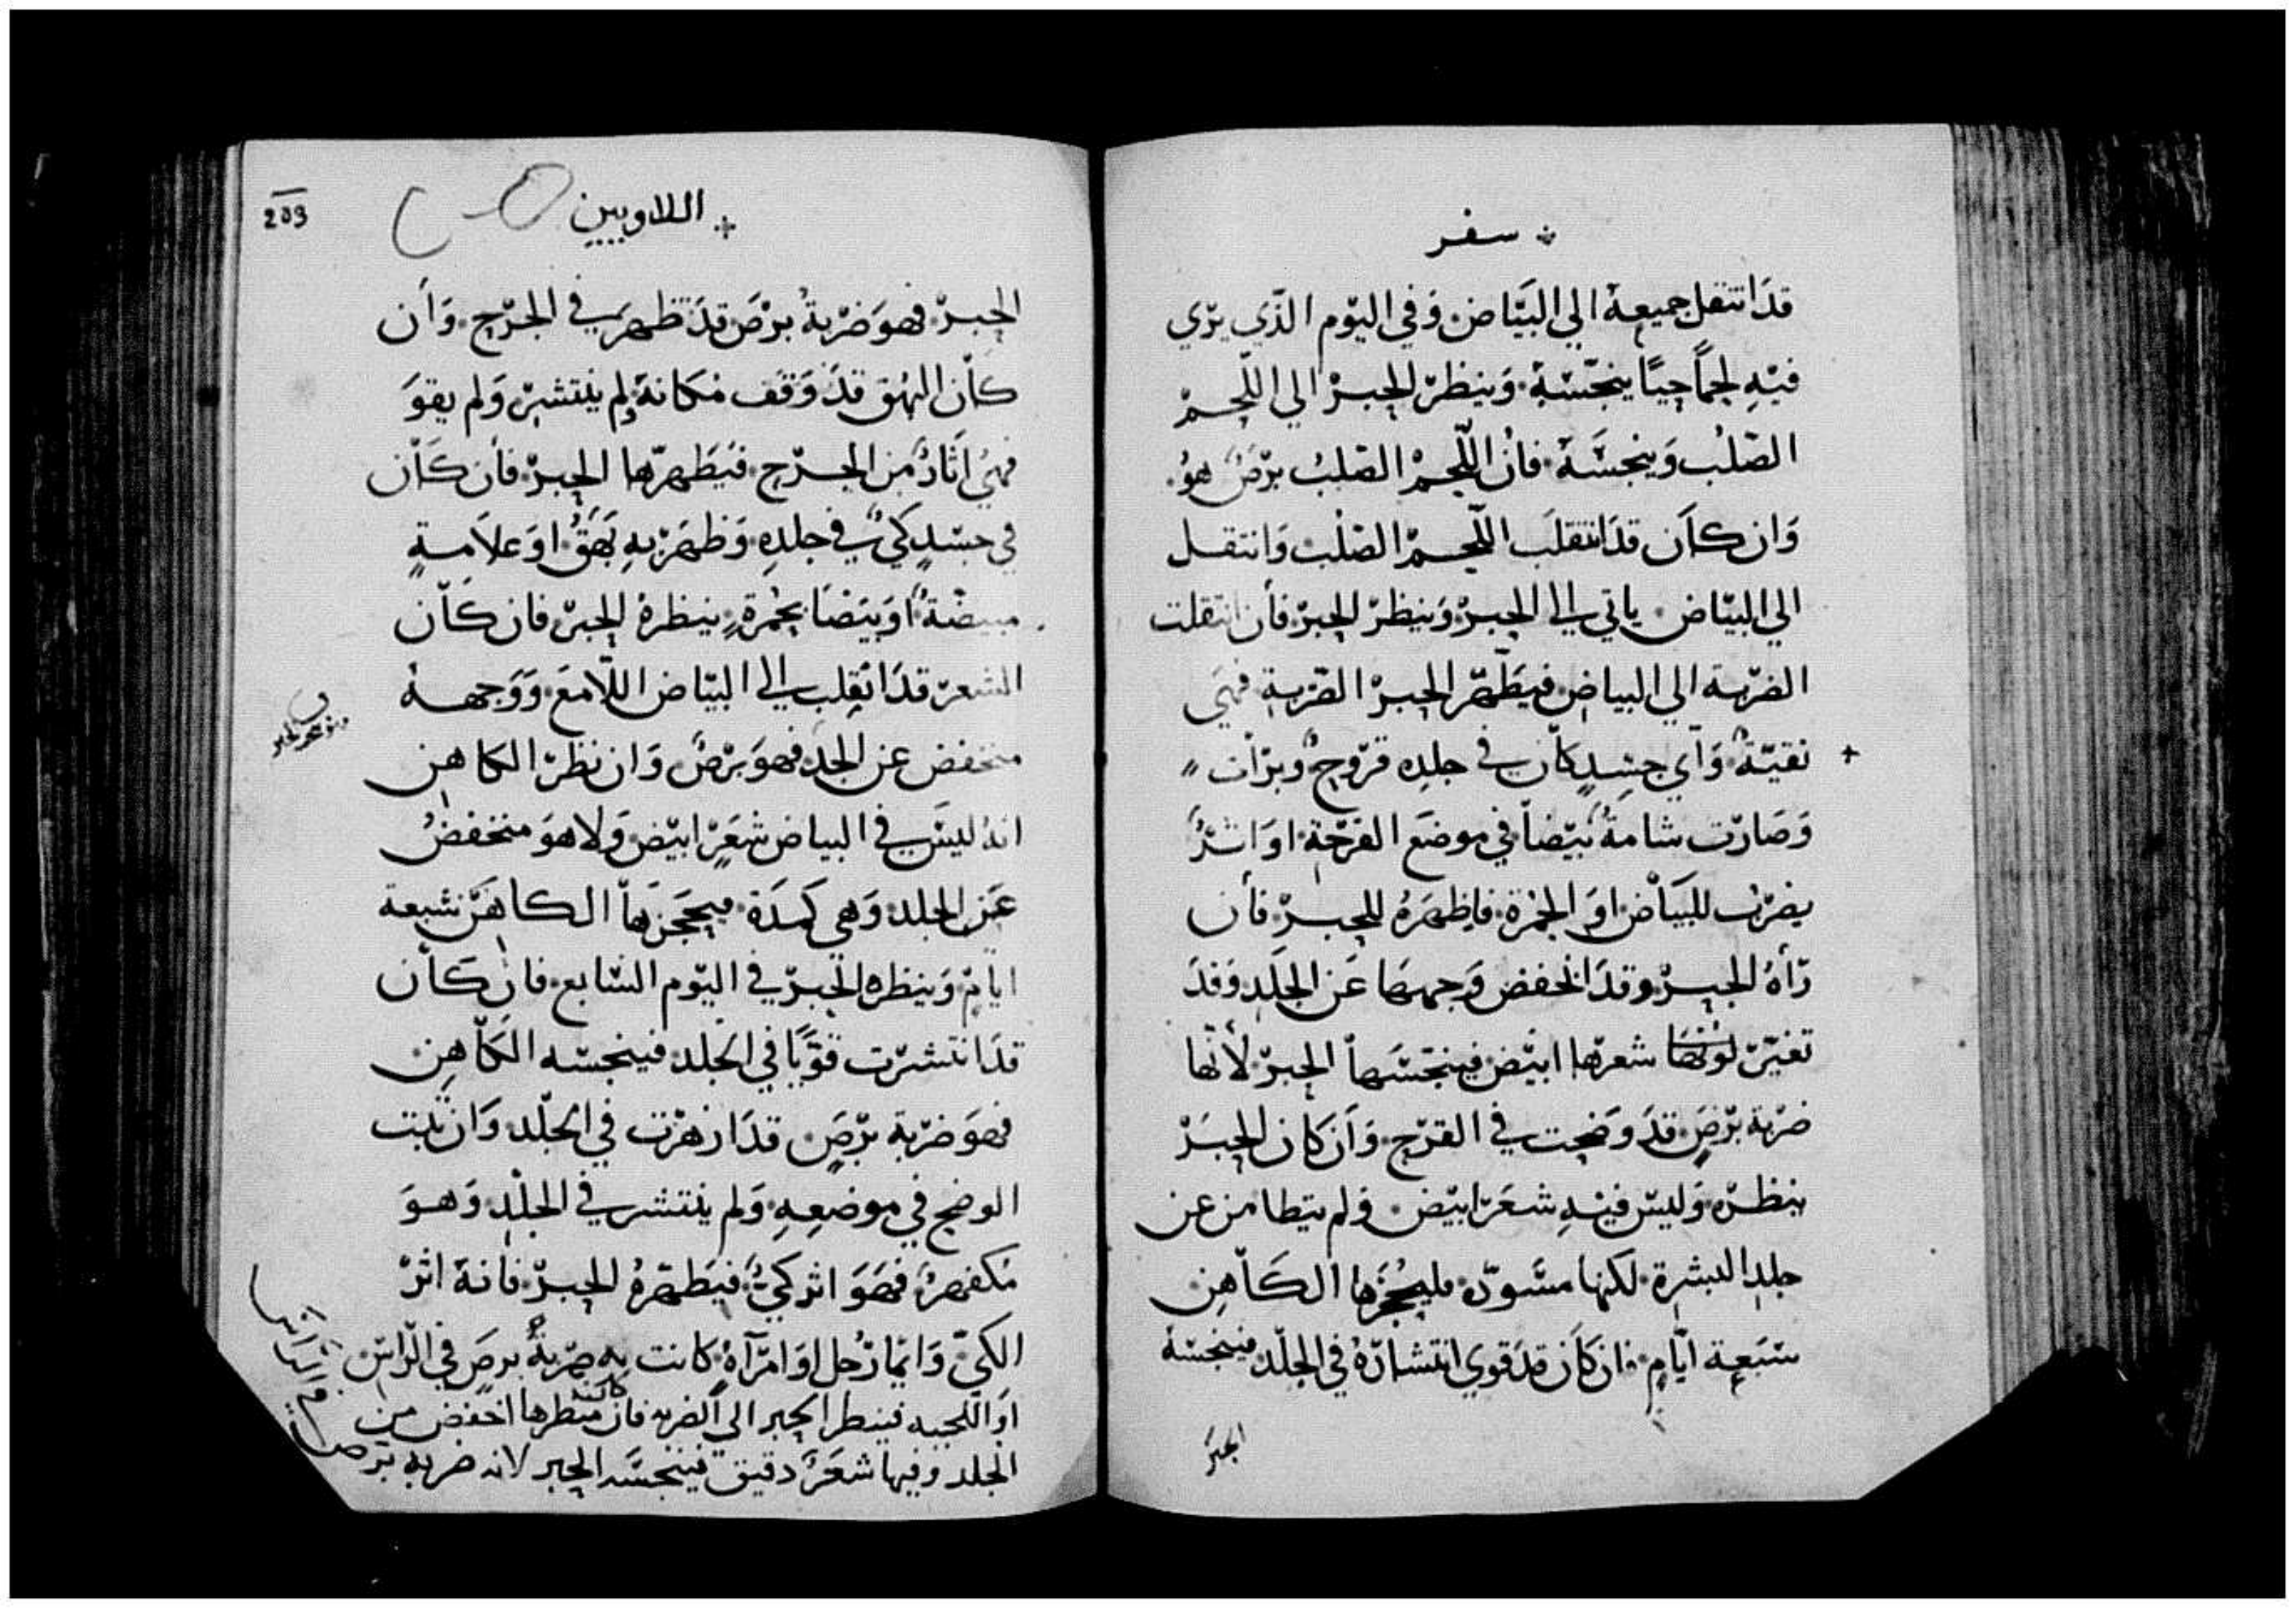 سفر
قدَ انتقل جميعهُ الي البَيَّاض وَفي اليوّم الذّي يرّي
فيّهِ لحماً حيًا ينجّسّهُ وَينظرّ الحِبرّ الي اللّحمّ
الصّلبُ وَينجسَّهُ فانُ اللّحمّ الصّلبُ برّصُ هوُ
وَان كاَن قدَ انتقلَب اللّحمّ الصّلبُ وَانتقل
الي البيّاض ياتي الي الحِبرّ وَينظرّ الحِبرّ فأن انتقلت
الضرّبة الي البياض فيَطّهرّ الحِبرّ الضرّبة فهَي
نقيّةُ وَآي جسِدٍ كاّن في جلدِه قرّوحُ وبرّأت
وَصَارّت شامةُ بيّضاً في موضَع القرّحة اوَ اثرّ
يضرّبُ للبَيَاّض اوَ الحمُرّة فاِظهرَهُ للحِبرّ فأن
رّأهُ الحِبرّ وقدَ انخفض وَجههَا عَن الجلَد وَقدَ
تغيّرّ لونهَا شعرّها ابيّض فينجّسَّهاً الحِبرّ لأنّها
ضرّبة برّصَ قدَ وَضحت في القرّح وَأن كان الحِبرّ
ينظرّه وَليسّ فيّهِ شعَرّ ابيّض وَلم يتطامن عن
جلدِ البشرِة لكنها مسَّودّه فليحُجزها الكاَهِن
سّبَعِة ايّامٍ فان كاَن قدَ قوي انتشارّهُ في الجلّد فينجسّهُ
الحبرَ
اللاويين
203
الحِبرّ فهوَ ضرّبةُ برّصَ قدَ ظهرَت في الجرّح وَأن
كاّن البهُق قدَ وَقف مكانهُ وِلم ينتشِرّ وَلم يقوَ
فهيُ اثارُ من الجرّح فيَطَهرّها الحِبرّ فأن كاَن
في جسّدٍ كيُ في جلدِهِ وَظهَرّ بهِ بَهَقُ اوَ علاَمةٍ
مبيضّةُ اوَ بيَضَا بحمُرّةٍ ينظرهُ الحِبرّ فان كاَّن
الشعرّ قدَ انقلِب الي البيّاض اللّامعَ وَوَجههُ
منخفض عن الجلد فهوَ برّصُ وَان نظرّ الكاهن
انهُ ليسَّ في البياض شعَرّ ابيّض وَلا هوَ منخفضُ
عَن الجلد وَهي كَمدَة فيحَجَزهاّ الكاهَنّ سّبعة
ايّامٍ وَينظره الحّبرّ في اليوّم السّابع فان كاَن
قدَ انتشرّت قوّيًا في الجلد فينجسّه الكاّهِن
فهوَ ضرّبة برّصَ قدَ ازهرّت في الجلّد وَان ثبت
الوضح في موضعِهِ وَلم ينتشر في الجلّدِ وَهوَ
مكفهرُ فهَوَ اثر كيُ فيَطهّرهُ الحِبرّ فانهُ اثرّ
الكيّ وَايّما رّجُل اوَ امرّآهُ كانت به ضرّبةُ برصَ في الرّاسّ
اوَ اللحيه فينطر الحبر الي الضربه فان كان منظرها اخفض من
الجلد وفيها شعَرّ دقيق فينجسَّه الحبر لانه ضربه برص